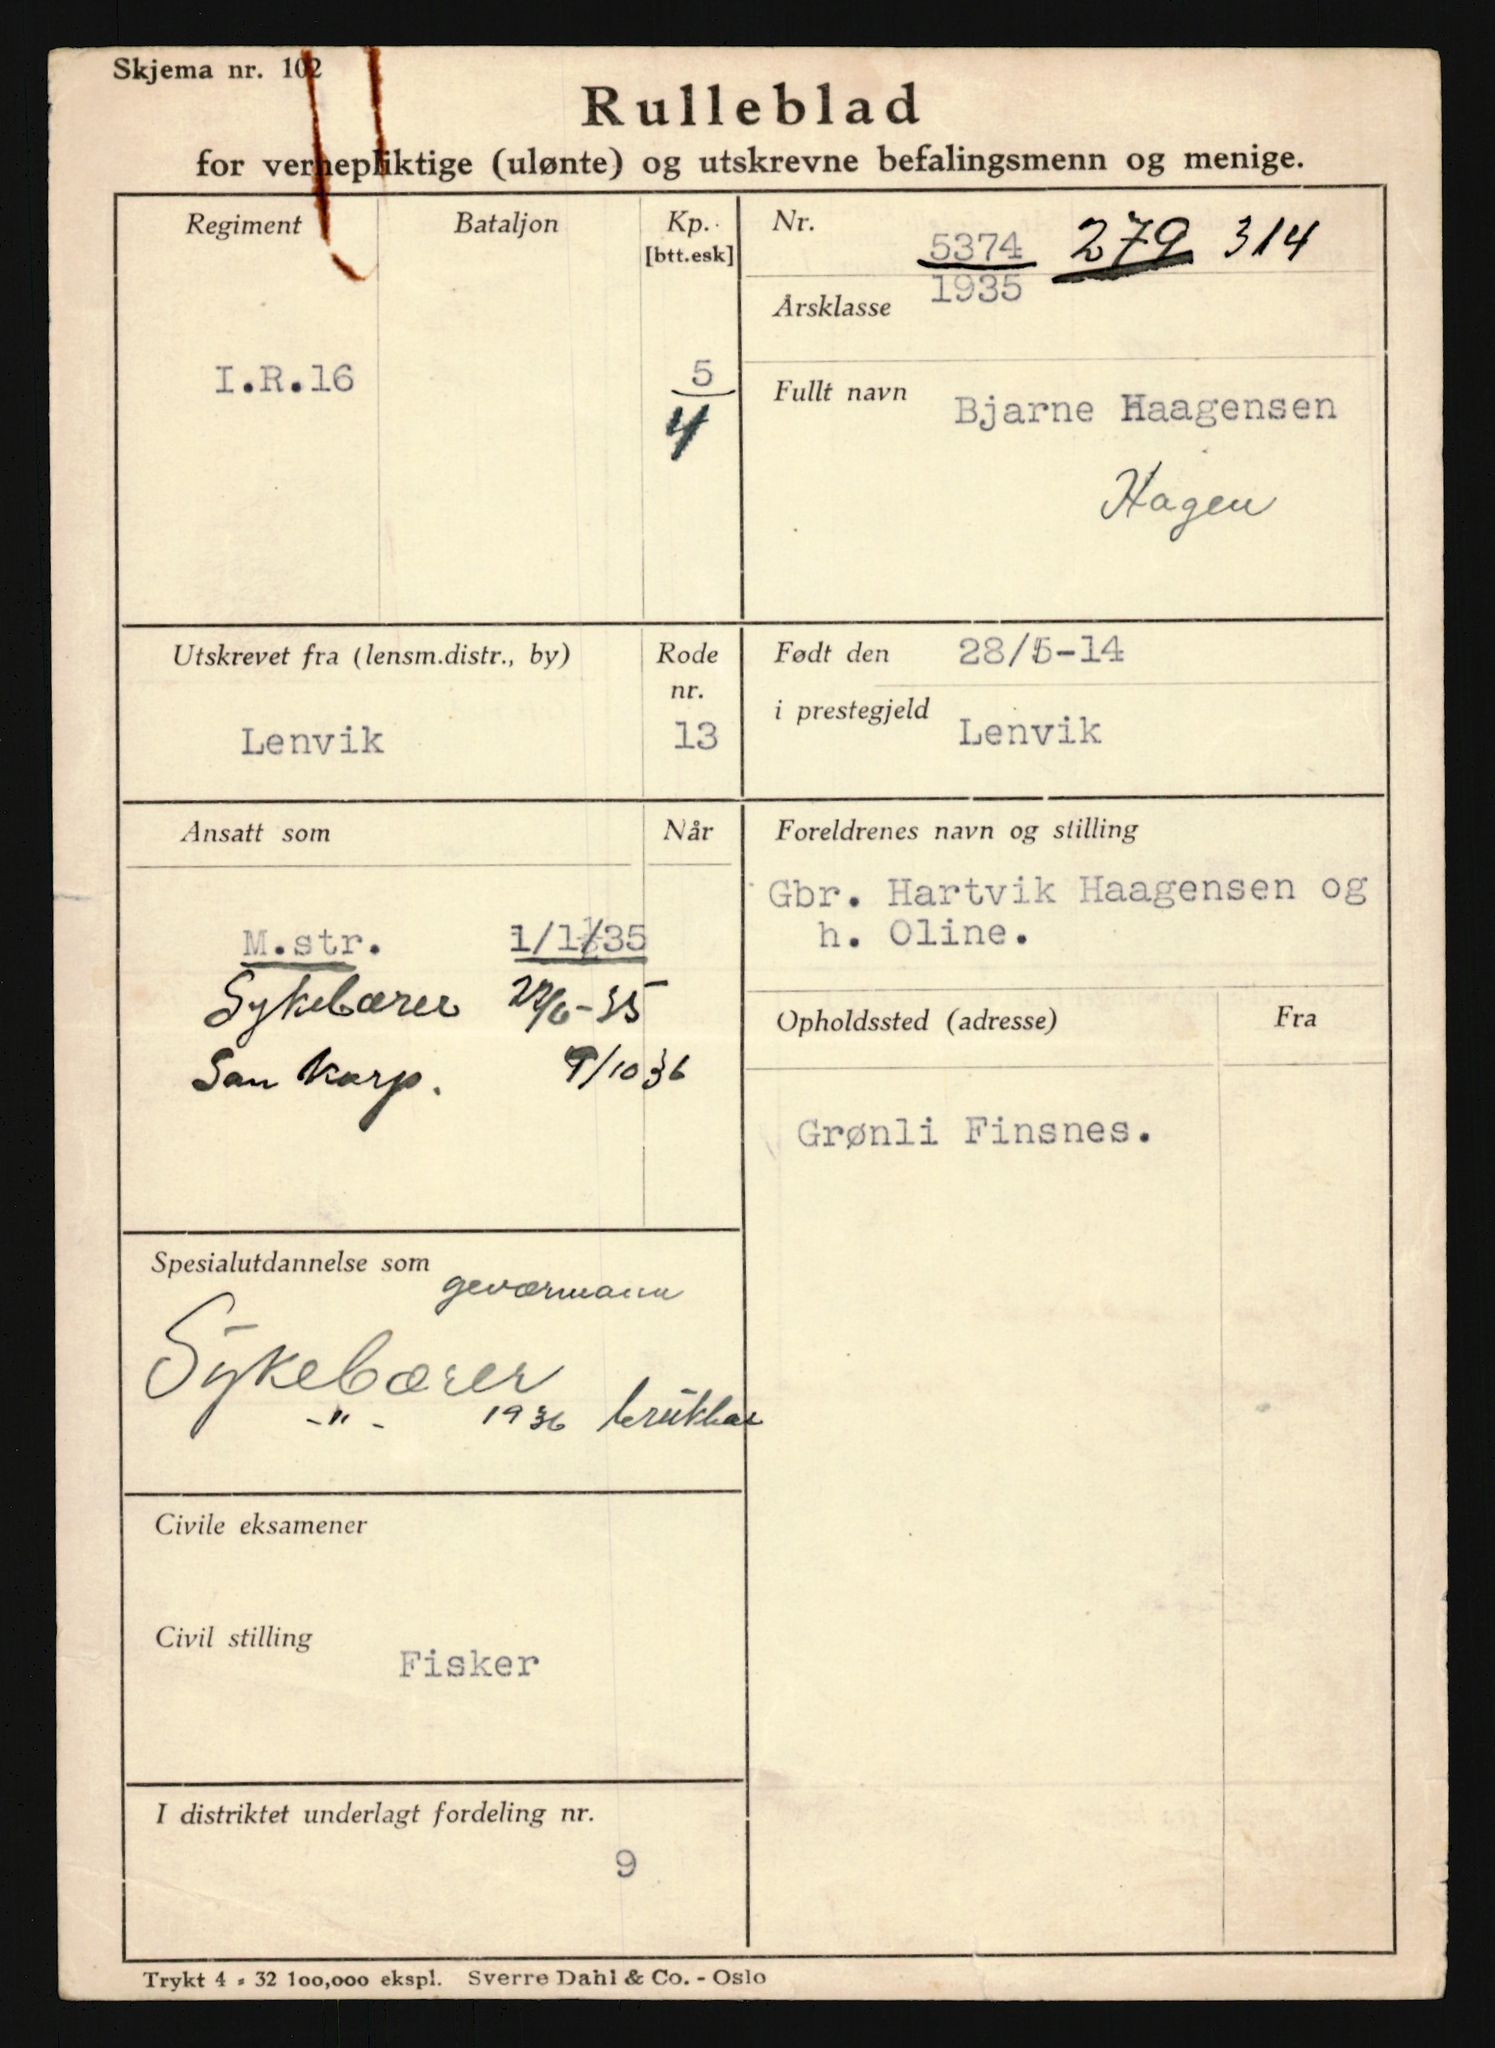 Skjema nr. 102
Rulleblad
for vernepliktige (ulønte) og utskrevne befalingsmenn og menige.
Regiment
Bataljon
Kp.
[btt.esk]
I.R.16
5
4
Nr.
5374 279 314
Årsklasse 1935
Fullt navn Bjarne Haagensen
Hagen
Utskrevet fra (lensm.distr., by)
Lenvik
Rode
nr.
13
Født den 28/5-14
i prestegjeld Lenvik
Ansatt som
Når
M.str. 1/1/35
Sykebærer /6-35
San Korp. 9/10 36
Foreldrenes navn og stilling
Gbr. Hartvik Haagensen og
h. Oline.
Opholdssted (adresse)
Fra
Grønli Finsnes.
Spesialutdannelse som
geværmann
Sykebærer
-"- 1936 brukbar
Civile eksamener
Civil stilling
Fisker
I distriktet underlagt fordeling nr.
9
Trykt 4 - 32 100,000 ekspl. Sverre Dahl & Co. - Oslo